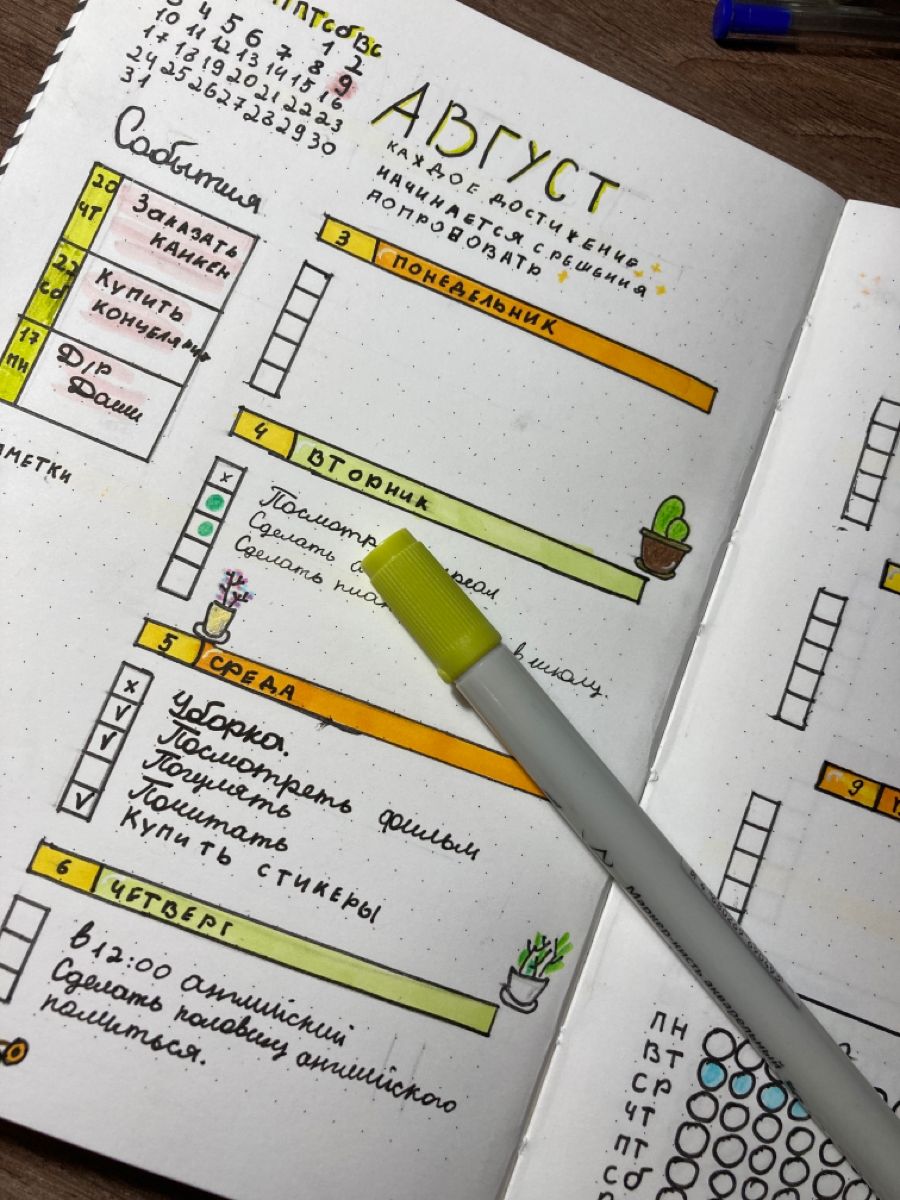 ПТ Сб Вс
1 2
3 4 5 6 7 8 9
10 11 12 13 14 15 16
17 18 19 20 21 22 23
24 25 26 27 28 29 30
31
АВГУСТ
КАЖДОЕ ДОСТИЖЕНИЕ
НАЧИНАЕТСЯ С РЕШЕНИЯ
ПОПРОБОВАТЬ
События
20 ЧТ
Заказать
канкен
22 сб
Купить
концелярию
17 пн
Д/р
Даши
МЕТКИ
3 ПОНЕДЕЛЬНИК
4 ВТОРНИК
x
Сделать
Сделать
в школу.
5 СРЕДА
x
v
v
v
Уборка.
Посмотреть фильм
Погулять
Почитать
Купить стикеры
6 ЧЕТВЕРГ
в 12:00 английский
Сделать половину английского
помыться.
9
Маркер-кисть акварельный
ПН
ВТ
СР
ЧТ
ПТ
Сб